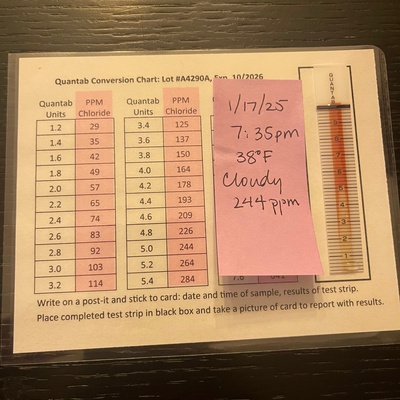 Quantab Conversion Chart: Lot #A4290A, Exp. 10/2026
Quantab Units PPM Chloride
1.2 29
1.4 35
1.6 42
1.8 49
2.0 57
2.2 65
2.4 74
2.6 83
2.8 92
3.0 103
3.2 114
Quantab Units PPM Chloride
3.4 125
3.6 137
3.8 150
4.0 164
4.2 178
4.4 193
4.6 209
4.8 226
5.0 244
5.2 264
5.4 284
1/17/25
7:35pm
38°F
Cloudy
244 ppm
QUANTAB
Write on a post-it and stick to card: date and time of sample, results of test strip.
Place completed test strip in black box and take a picture of card to report with results.